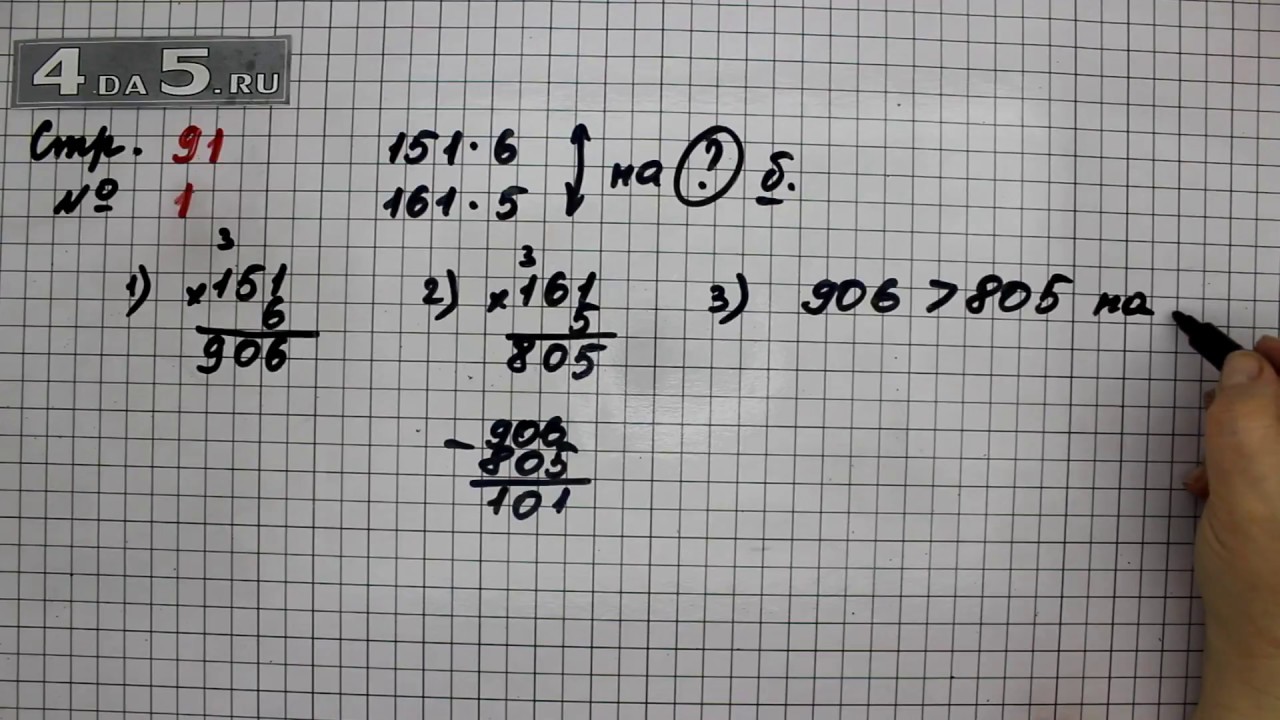 4DA5.RU
Стр. 91
№ 1
151 · 6
161 · 5
на ? б.
1)
3
×151
6
906
2)
3
×161
5
805
-906
805
101
3) 906 > 805 на